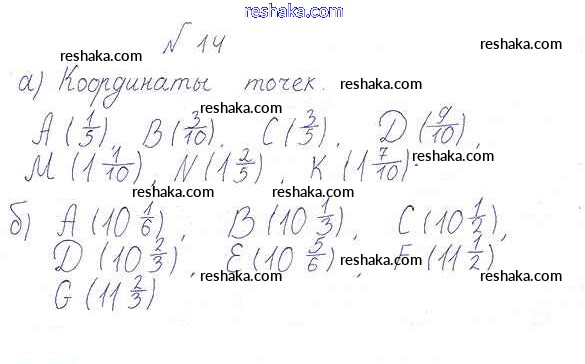 reshaka.com
№ 14
reshaka.com reshaka.com
а) Координаты точек. reshaka.com
reshaka.com
A (1/5), B (3/10), C (3/5), D (9/10),
reshaka.com reshaka.com
M (1 1/10), N (1 2/5), K (1 7/10).
reshaka.com
б) A (10 1/6), B (10 1/3), C (10 1/2),
reshaka.com reshaka.com
D (10 2/3), E (10 5/6), F (11 1/2),
reshaka.com reshaka.com
G (11 2/3) reshaka.com
reshaka.com